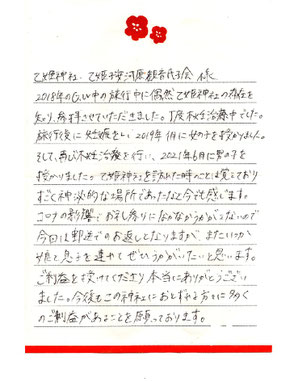 乙姫神社、乙姫子安河原観音氏子会 様
2018年のG.W中の旅行中に偶然乙姫神社の存在を
知り、参拝させていただきました。丁度不妊治療中でした。
旅行後に妊娠をし、2019年1月に女の子を授かりました。
そして、再び不妊治療を行い、2021年6月に男の子を
授かりました。乙姫神社を訪れた時へとは覚えており
すごく神秘的な場所であったなと今でも感じます。
コロナの影響でお礼参りになかなかうかがえないので
今回は郵送でのお返しとなりますが、またいつか
娘と息子を連れてぜひうかがいたいと思います。
ご利益を授けてくださり本当にありがとうござい
ました。今後もこの神社におとずれる方々に多く
のご利益があることを願っております。